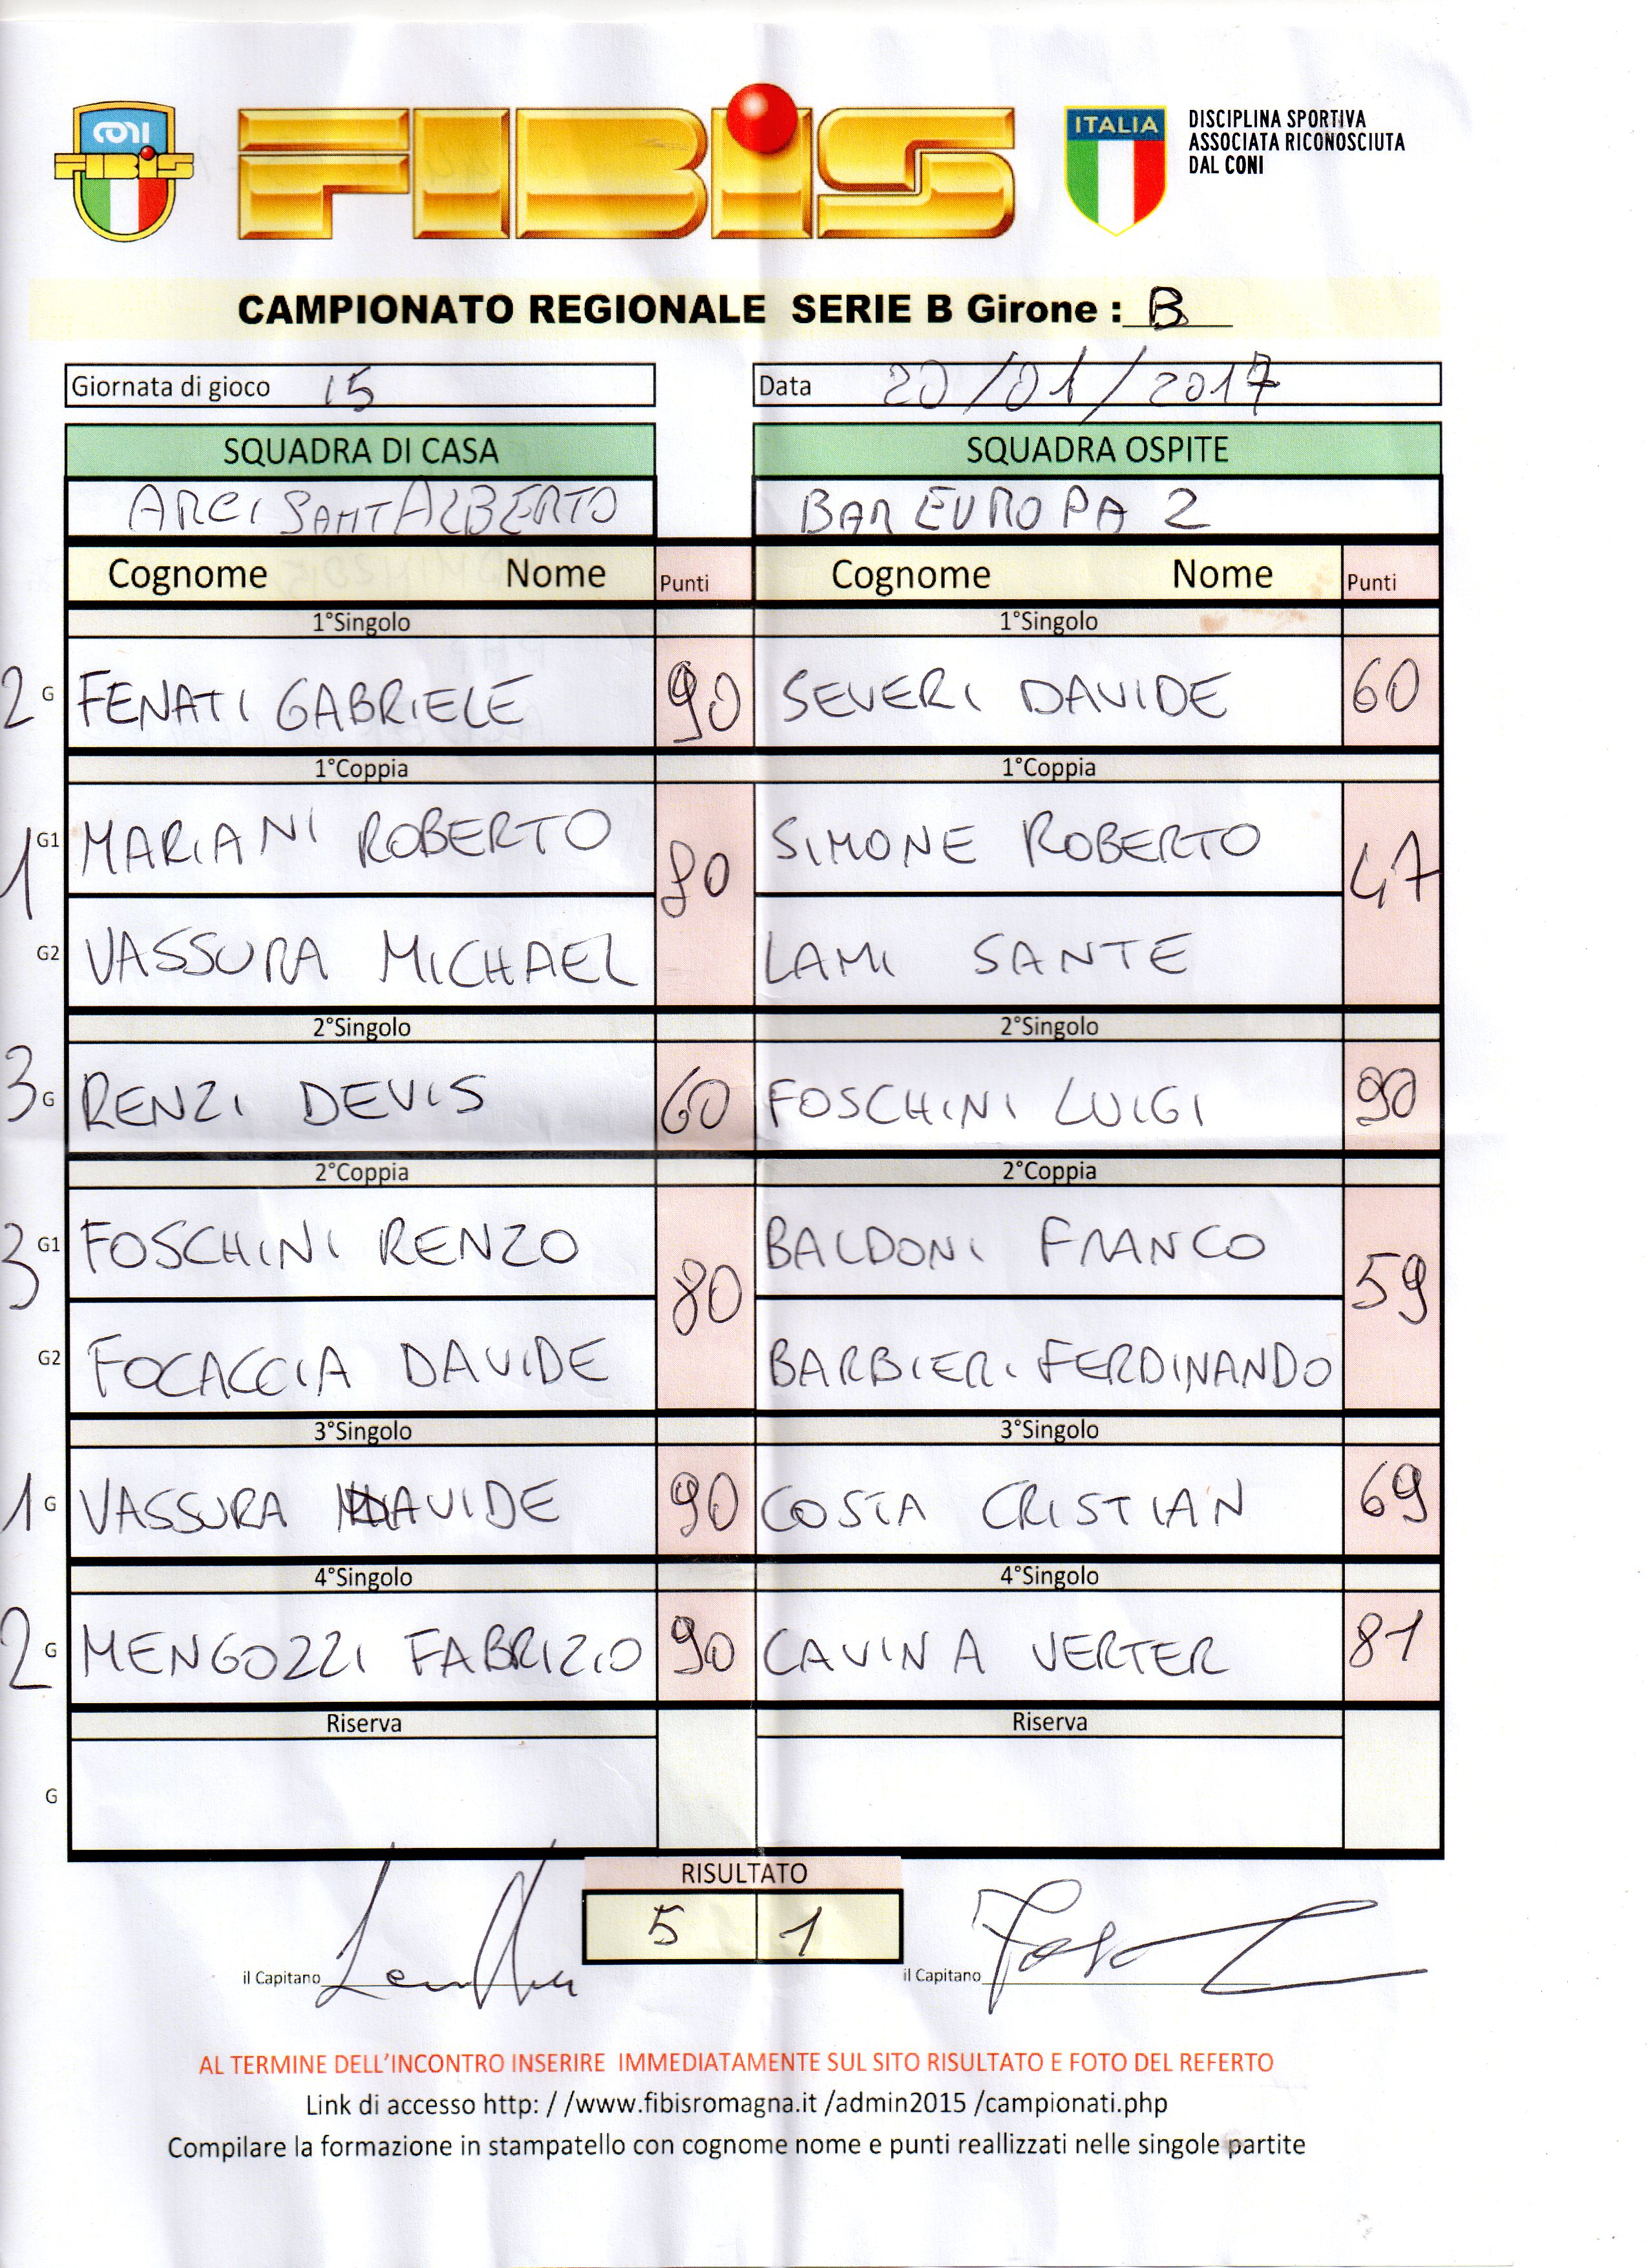 CONI
FIBIS
FIBIS
ITALIA
DISCIPLINA SPORTIVA
ASSOCIATA RICONOSCIUTA
DAL CONI
CAMPIONATO REGIONALE SERIE B Girone : B
Giornata di gioco 15 Data 20/01/2017
SQUADRA DI CASA SQUADRA OSPITE
ARCI SANT ALBERTO BAR EUROPA 2
Cognome Nome Punti Cognome Nome Punti
1°Singolo 1°Singolo
2 G FENATI GABRIELE 90 SEVERI DAVIDE 60
1°Coppia 1°Coppia
1 G1 MARIANI ROBERTO 80 SIMONE ROBERTO 47
G2 VASSURA MICHAEL LAMI SANTE
2°Singolo 2°Singolo
3 G RENZI DEVIS 60 FOSCHINI LUIGI 90
2°Coppia 2°Coppia
3 G1 FOSCHINI RENZO 80 BALDONI FRANCO 59
G2 FOCACCIA DAVIDE BARBIERI FERDINANDO
3°Singolo 3°Singolo
1 G VASSURA DAVIDE 90 COSTA CRISTIAN 69
4°Singolo 4°Singolo
2 G MENGOZZI FABRIZIO 90 CAVINA VERTER 81
Riserva Riserva
G
RISULTATO
5 1
il Capitano il Capitano
AL TERMINE DELL'INCONTRO INSERIRE IMMEDIATAMENTE SUL SITO RISULTATO E FOTO DEL REFERTO
Link di accesso http: / /www.fibisromagna.it /admin2015 /campionati.php
Compilare la formazione in stampatello con cognome nome e punti reallizzati nelle singole partite